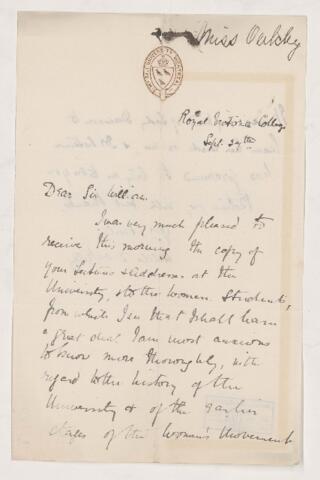 Miss Oakley
McGILL UNIVERSITY MONTREAL
Royal Victoria College
Sept. 29th
Dear Sir William,
I was very much pleased to
receive this morning the copy of
your Lectures & Addresses at the
University, & to the Women Students,
from which I see that I shall learn
a great deal I am most anxious
to know more thoroughly, with
regard to the history of the
University & of the earlier
stages of the Women's Movement